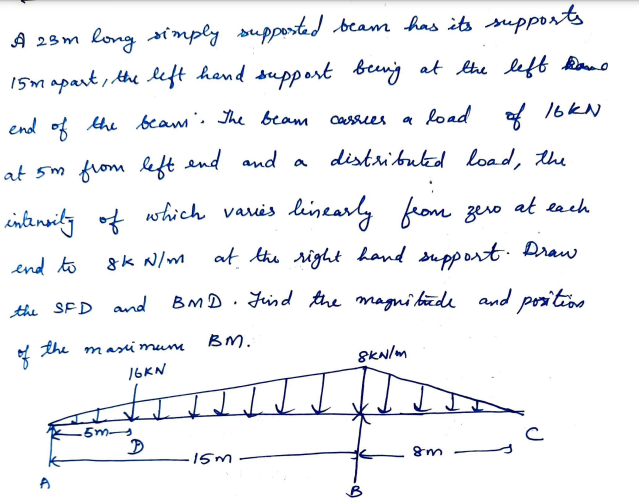 A 23m long simply supported beam has its supports
15m apart, the left hand support being at the left
end of the beam. The beam carries a load of 16kN
at 5m from left end and a distributed load, the
intensity of which varies linearly from zero at each
end to 8k N/m at the right hand support. Draw
the SFD and BMD. Find the magnitude and position
of the maximum BM.
16KN
8KN/m
5m
D
C
15m
8m
A
B